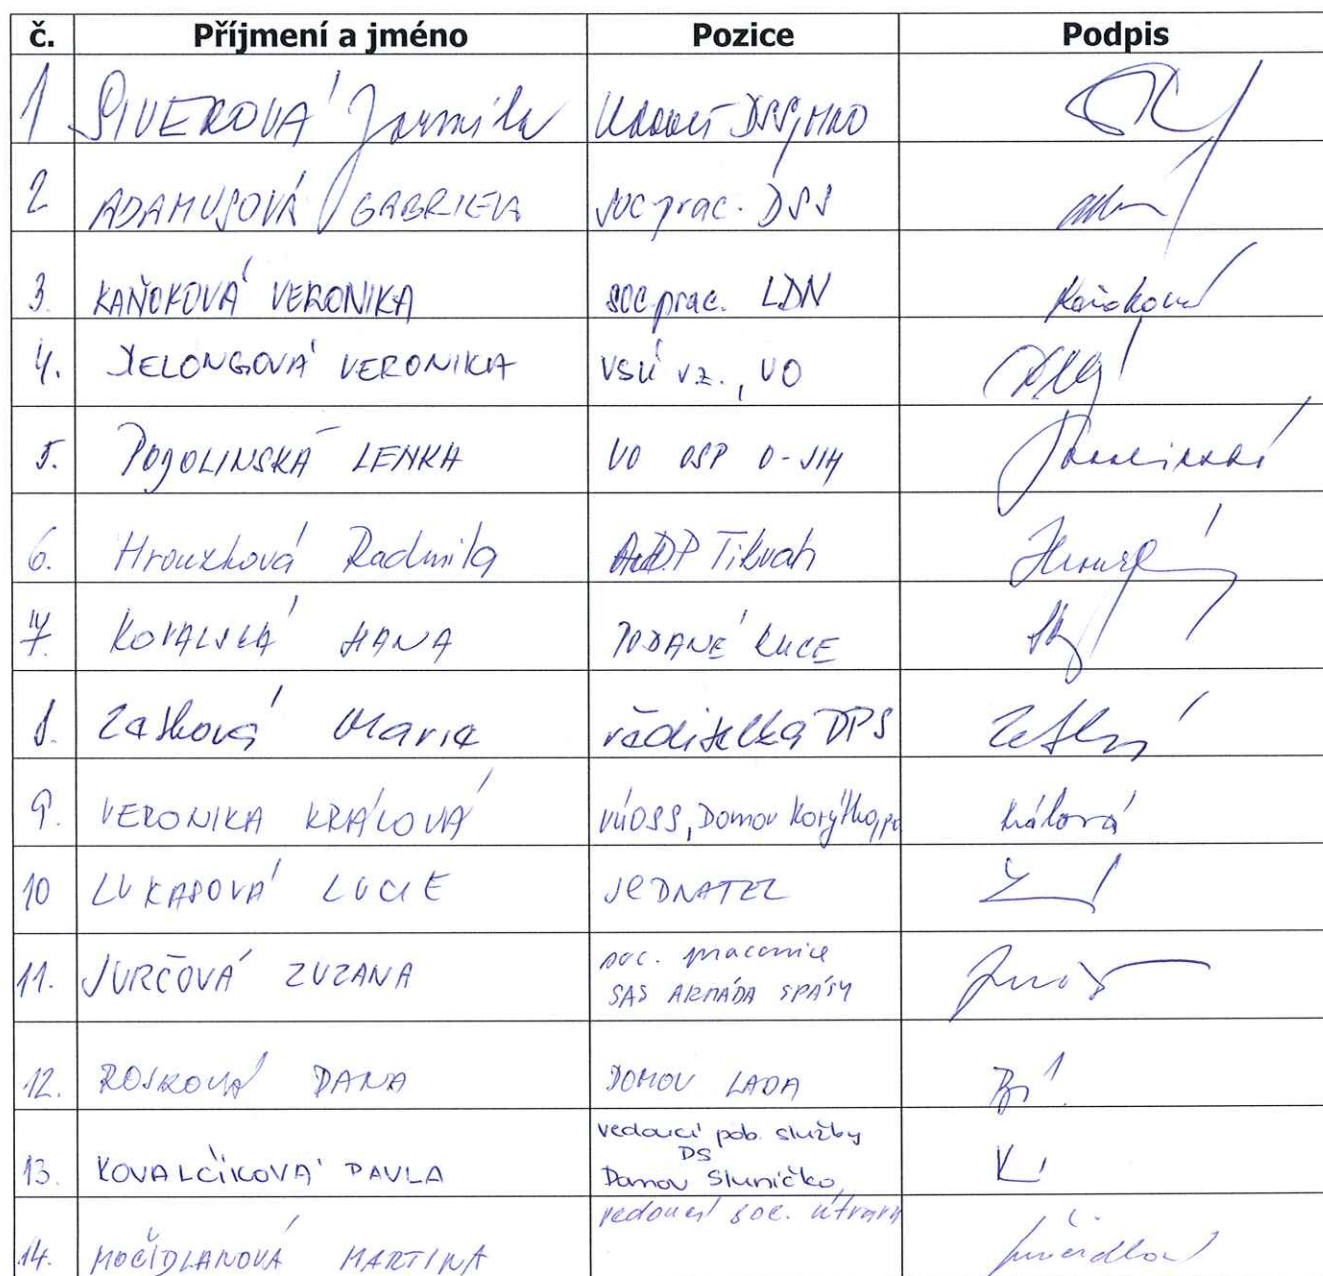 č. Příjmení a jméno Pozice Podpis
1 SIVEROVÁ Jarmila
2 ADAMUSOVÁ GABRIELA soc prac. DSS
3. KAŇOKOVÁ VERONIKA soc prac. LDN Kaňoková
4. JELONGOVÁ VERONIKA VSÚ vz., VO
5. PODOLINSKÁ LENKA VO OSP O-JIH
6. Hrouzková Radmila Tikvah
7. KOVALSKÁ HANA PODANÉ RUCE
8. Zatková Marie ředitelka DPS
9. VERONIKA KRÁLOVÁ VÚOSS, Domov Korýtko, po Králová
10 LUKASOVÁ LUCIE JEDNATEL
11. JURČOVÁ ZUZANA soc. pracovnice
SAS ARMÁDA SPÁSY
12. ROSKOVÁ DANA DOMOV LADA
13. KOVALČÍKOVÁ PAVLA vedoucí pob. služby
DS
Domov Sluníčko,
14. MOČIDLANOVÁ MARTINA vedoucí soc. útvaru